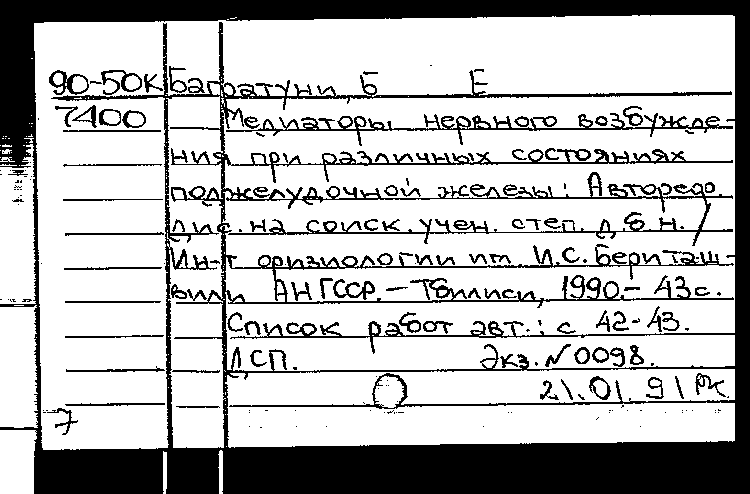 90-50К Багратуни, Б Е
7400 Медиаторы нервного возбужде-
ния при различных состояниях
поджелудочной железы: Автореф.
дис. на соиск. учен. степ. д.б.н. /
Ин-т физиологии им. И.С. Бериташ-
вили АН ГССР. - Тбилиси, 1990. - 43с.
Список работ авт.: с. 42-43.
ДСП. Экз. №0098.
21.01.91
7